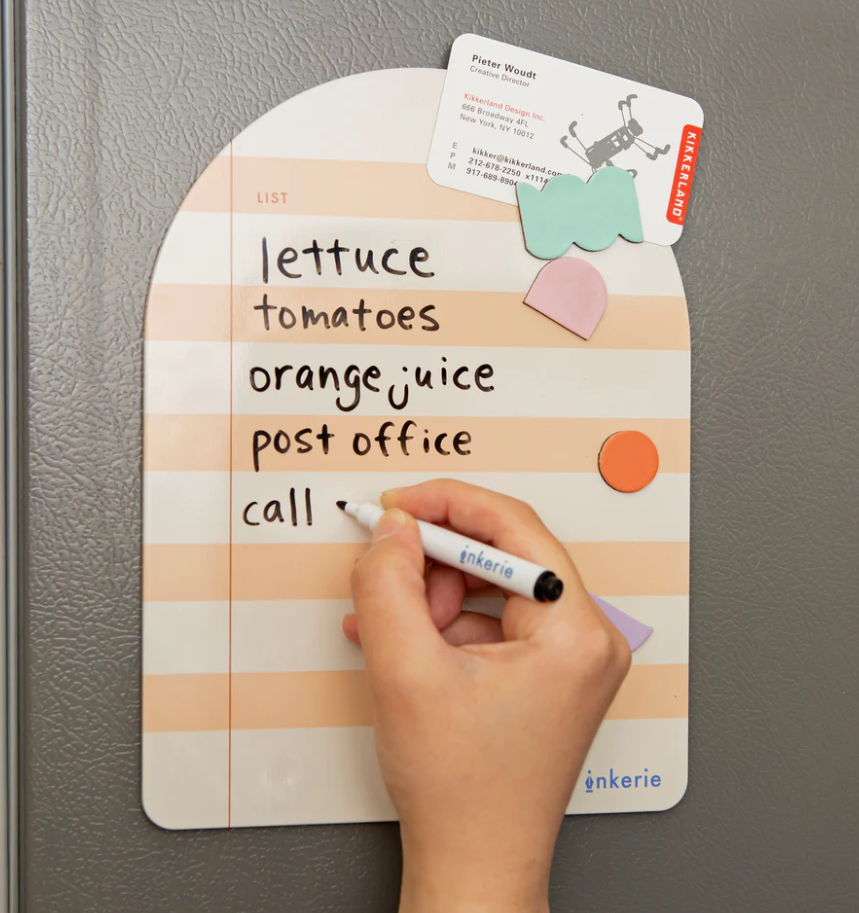 Pieter Woudt
Creative Director
Kikkerland Design Inc.
666 Broadway 4FL
New York, NY 10012
E kikker@kikkerland.com
P 212-678-2250 x1114
M 917-689-8904
KIKKERLAND
LIST
lettuce
tomatoes
orange juice
post office
call
inkerie
inkerie